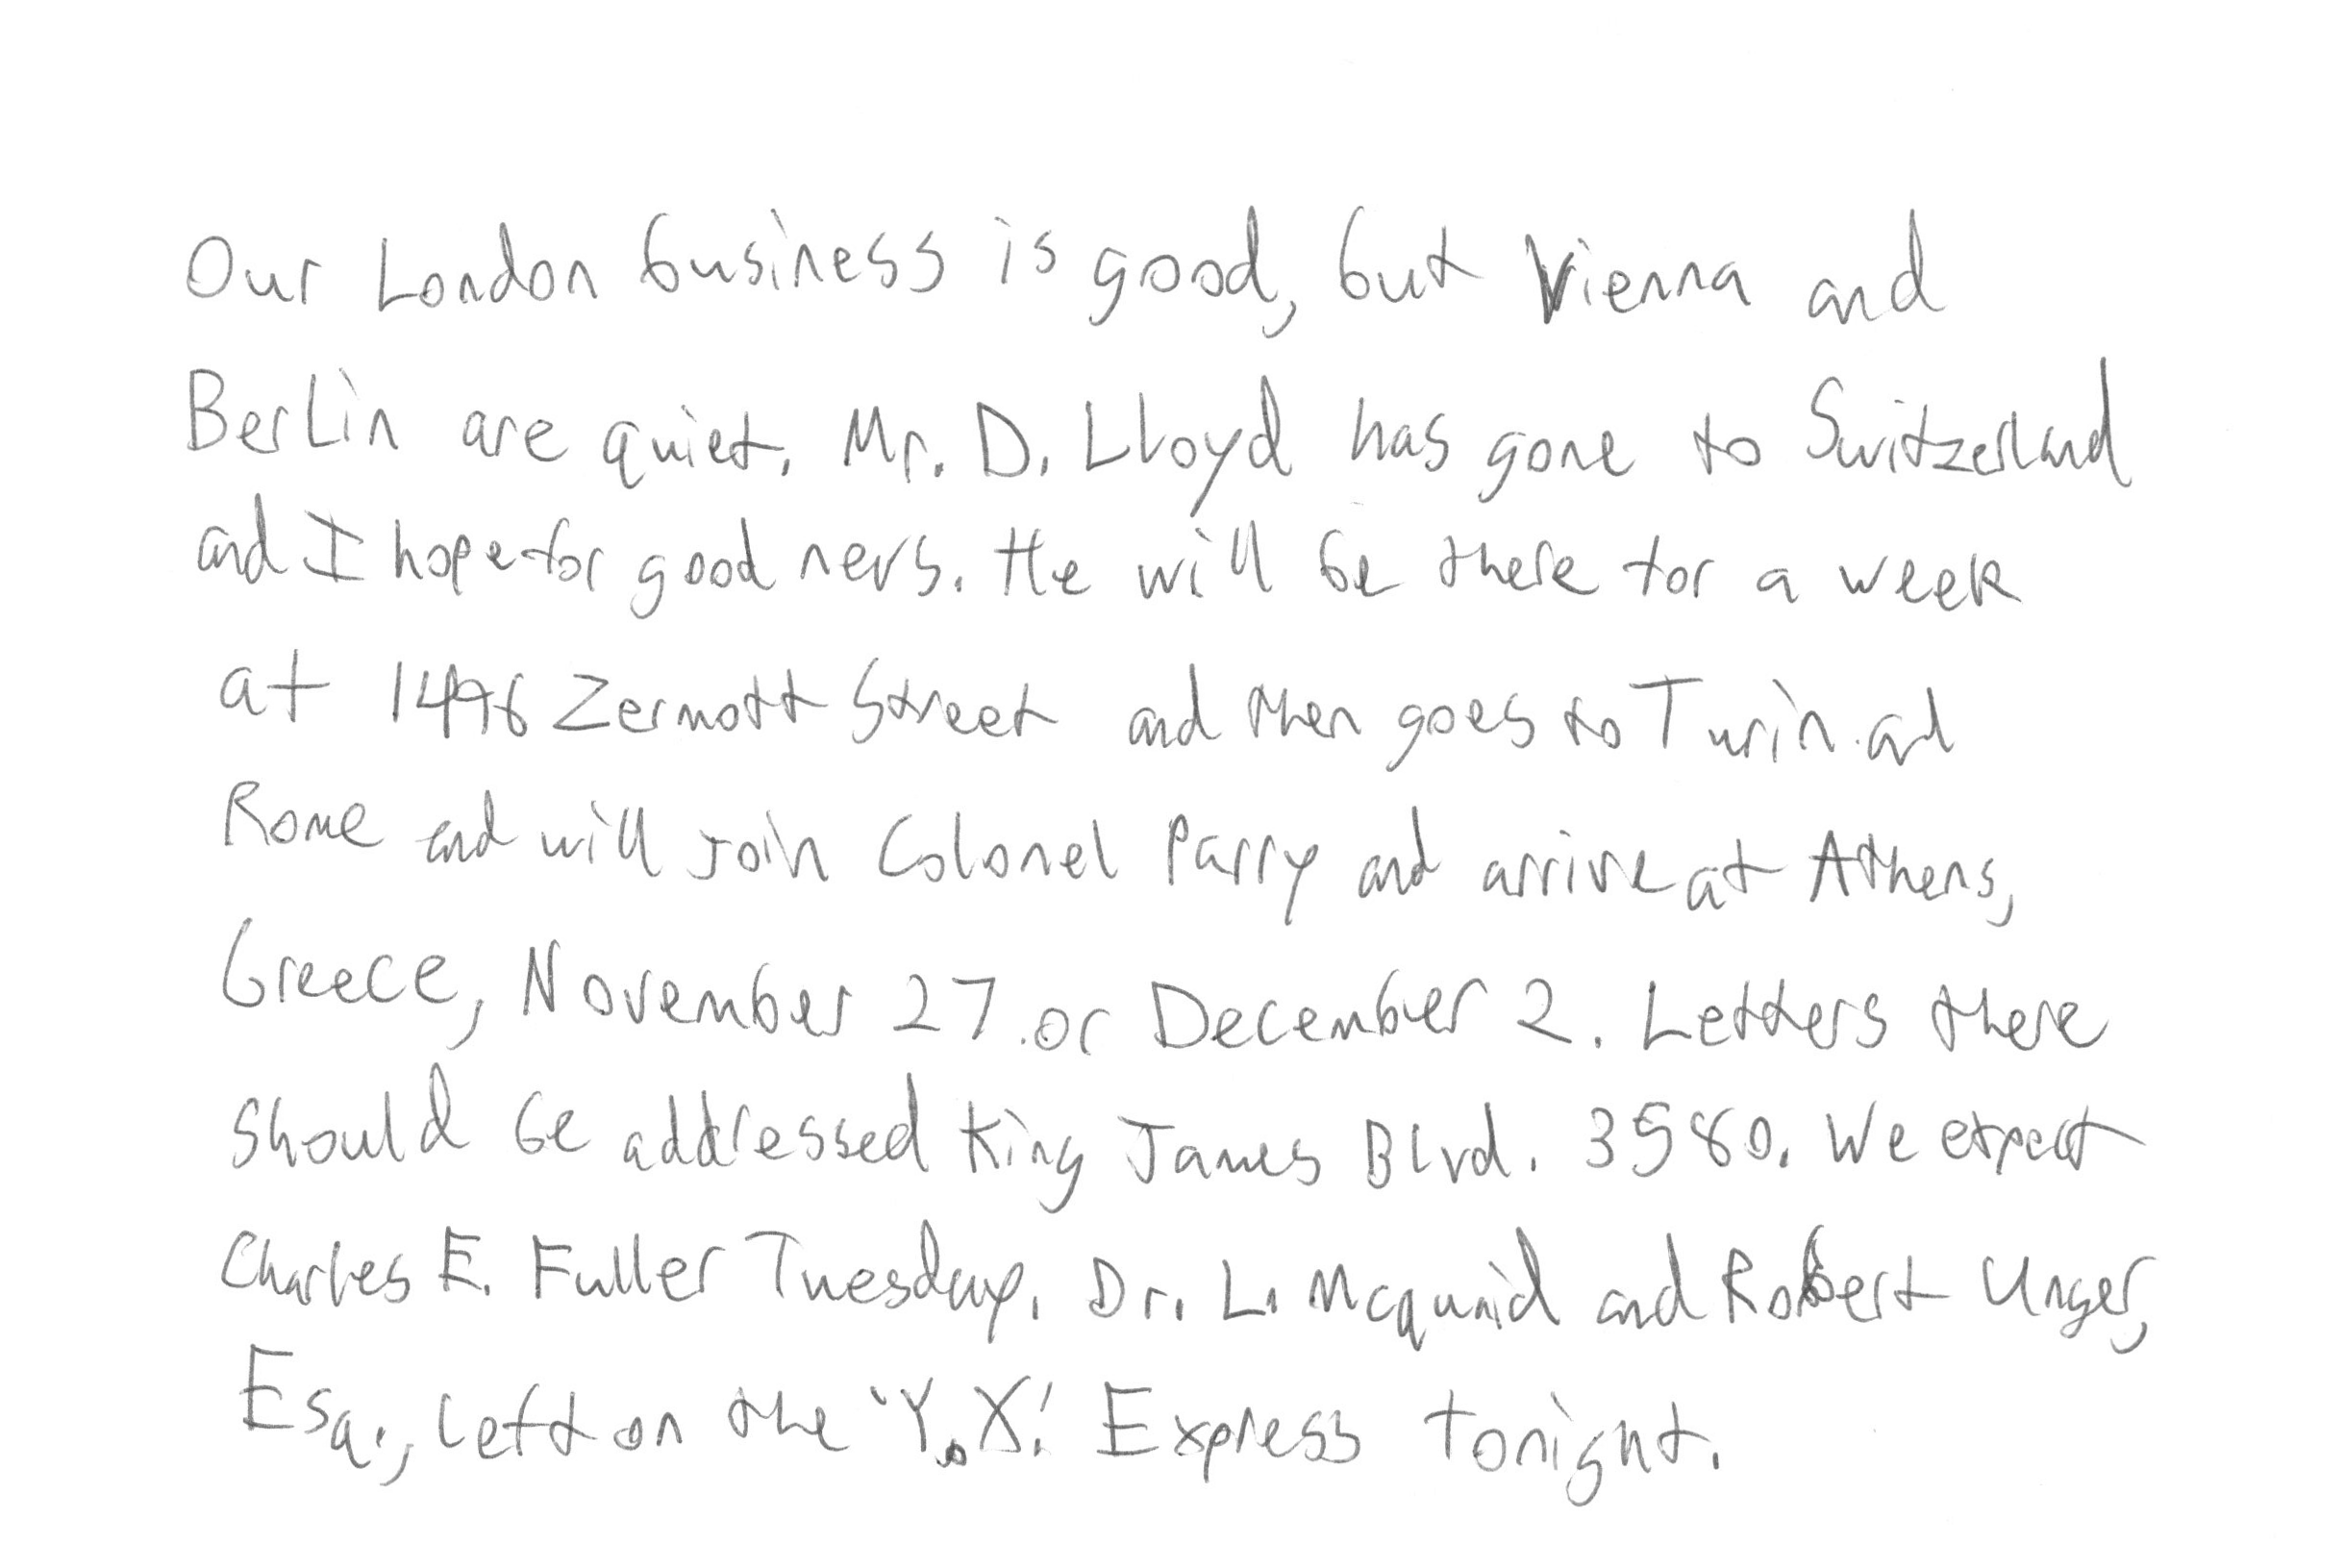 Our London business is good, but Vienna and
Berlin are quiet. Mr. D. Lloyd has gone to Switzerland
and I hope for good news. He will be there for a week
at 1496 Zermott Street and then goes to Turin and
Rome and will join Colonel Parry and arrive at Athens,
Greece, November 27 or December 2. Letters there
should be addressed King James Blvd. 3580. We expect
Charles E. Fuller Tuesday. Dr. L. Mcquaid and Robert Unger,
Esq., left on the 'Y.X.' Express tonight.